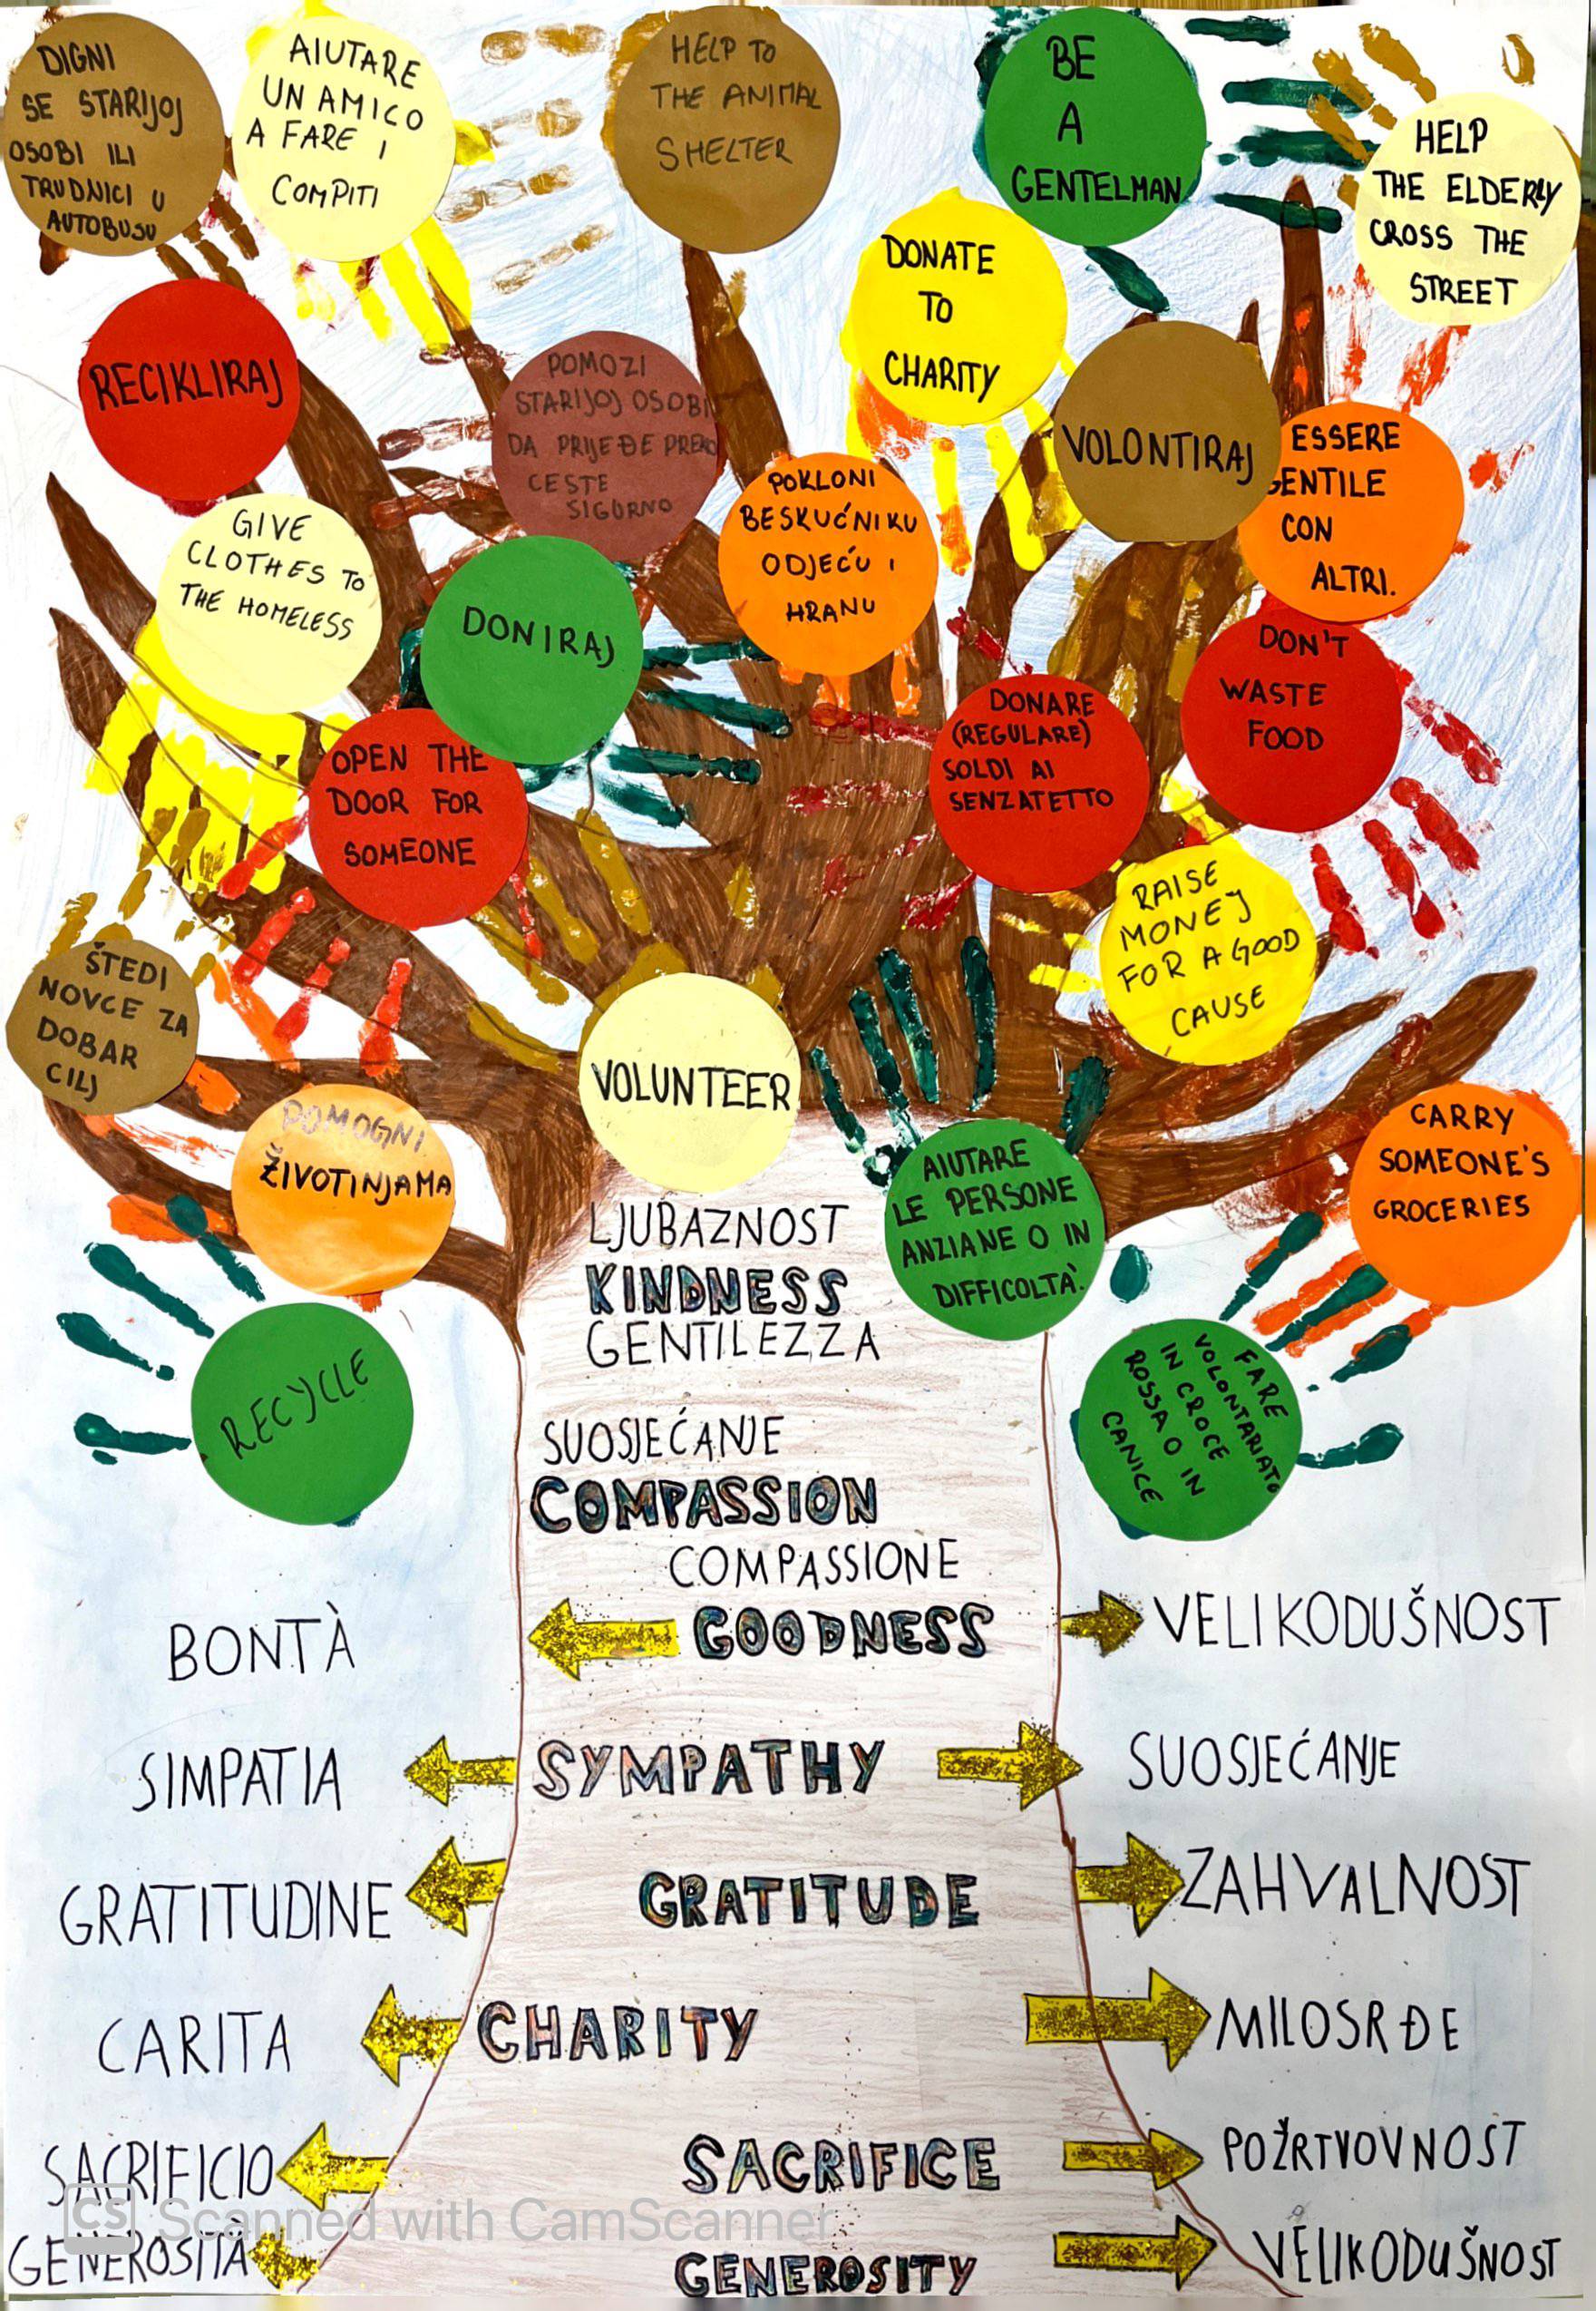 DIGNI
SE STARIJOJ
OSOBI ILI
TRUDNICI U
AUTOBUSU
AIUTARE
UN AMICO
A FARE I
COMPITI
HELP TO
THE ANIMAL
SHELTER
BE
A
GENTELMAN
HELP
THE ELDERLY
CROSS THE
STREET
DONATE
TO
CHARITY
RECIKLIRAJ
POMOZI
STARIJOJ OSOBI
DA PRIJEĐE PREKO
CESTE
SIGURNO
VOLONTIRAJ
ESSERE
GENTILE
CON
ALTRI.
POKLONI
BESKUĆNIKU
ODJEĆU I
HRANU
GIVE
CLOTHES TO
THE HOMELESS
DONIRAJ
DON'T
WASTE
FOOD
DONARE
(REGULARE)
SOLDI AI
SENZATETTO
OPEN THE
DOOR FOR
SOMEONE
RAISE
MONEY
FOR A GOOD
CAUSE
ŠTEDI
NOVCE ZA
DOBAR
CILJ
VOLUNTEER
POMOGNI
ŽIVOTINJAMA
AIUTARE
LE PERSONE
ANZIANE O IN
DIFFICOLTÀ.
CARRY
SOMEONE'S
GROCERIES
RECYCLE
FARE
VOLONTARIATO
IN CROCE
ROSSA O IN
CANICE
LJUBAZNOST
KINDNESS
GENTILEZZA
SUOSJEĆANJE
COMPASSION
COMPASSIONE
BONTÀ GOODNESS VELIKODUŠNOST
SIMPATIA SYMPATHY SUOSJEĆANJE
GRATITUDINE GRATITUDE ZAHVALNOST
CARITA CHARITY MILOSRĐE
SACRIFICIO SACRIFICE POŽRTVOVNOST
CS Scanned with CamScanner
GENEROSITÀ GENEROSITY VELIKODUŠNOST